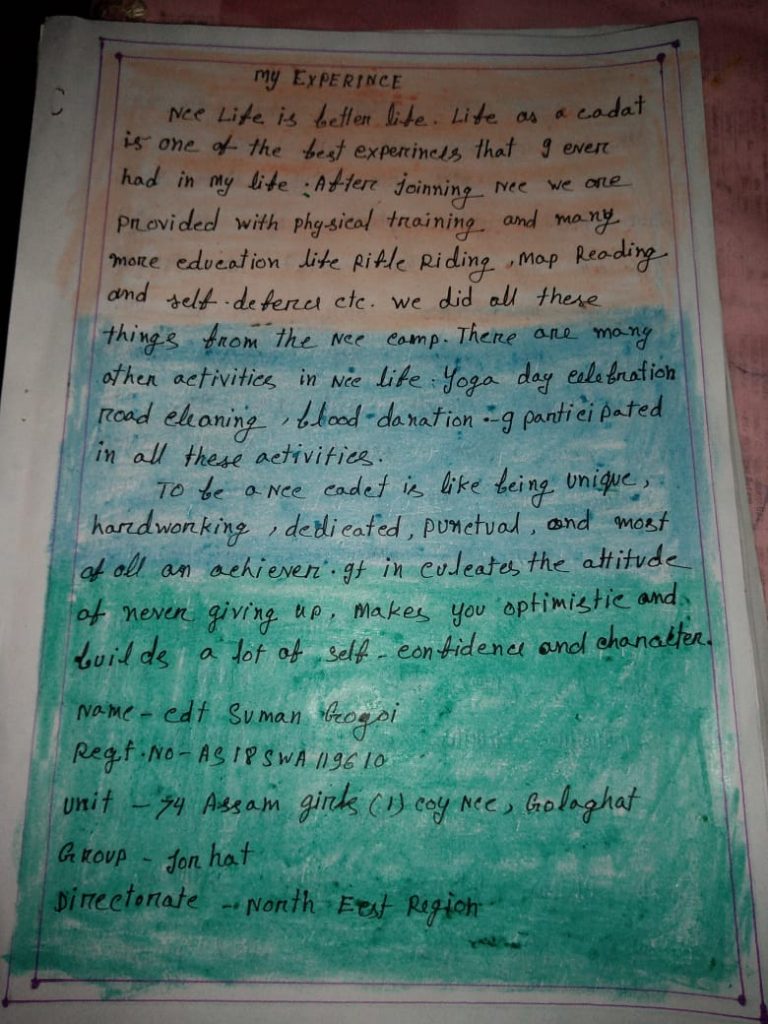 My EXPERINCE
Ncc Life is better life. Life as a cadat
is one of the best experinces that I ever
had in my life. After joinning Ncc we are
provided with physical training and many
more education life Rifle Riding, Map Reading
and self-defence etc. we did all these
things from the Ncc camp. There are many
other activities in Ncc life. Yoga day celebration
road cleaning, blood danation. I participated
in all these activities.
To be a Ncc cadet is like being unique,
hardworking, dedicated, punctual, and most
of all an achiever. It in culcates the attitude
of never giving up, makes you optimistic and
builds a lot of self-confidence and character.
Name - cdt Suman Gogoi
Regt. No - AS18SWA119610
unit - 74 Assam girls (1) coy Ncc, Golaghat
Group - Jorhat
Directorate - North East Region